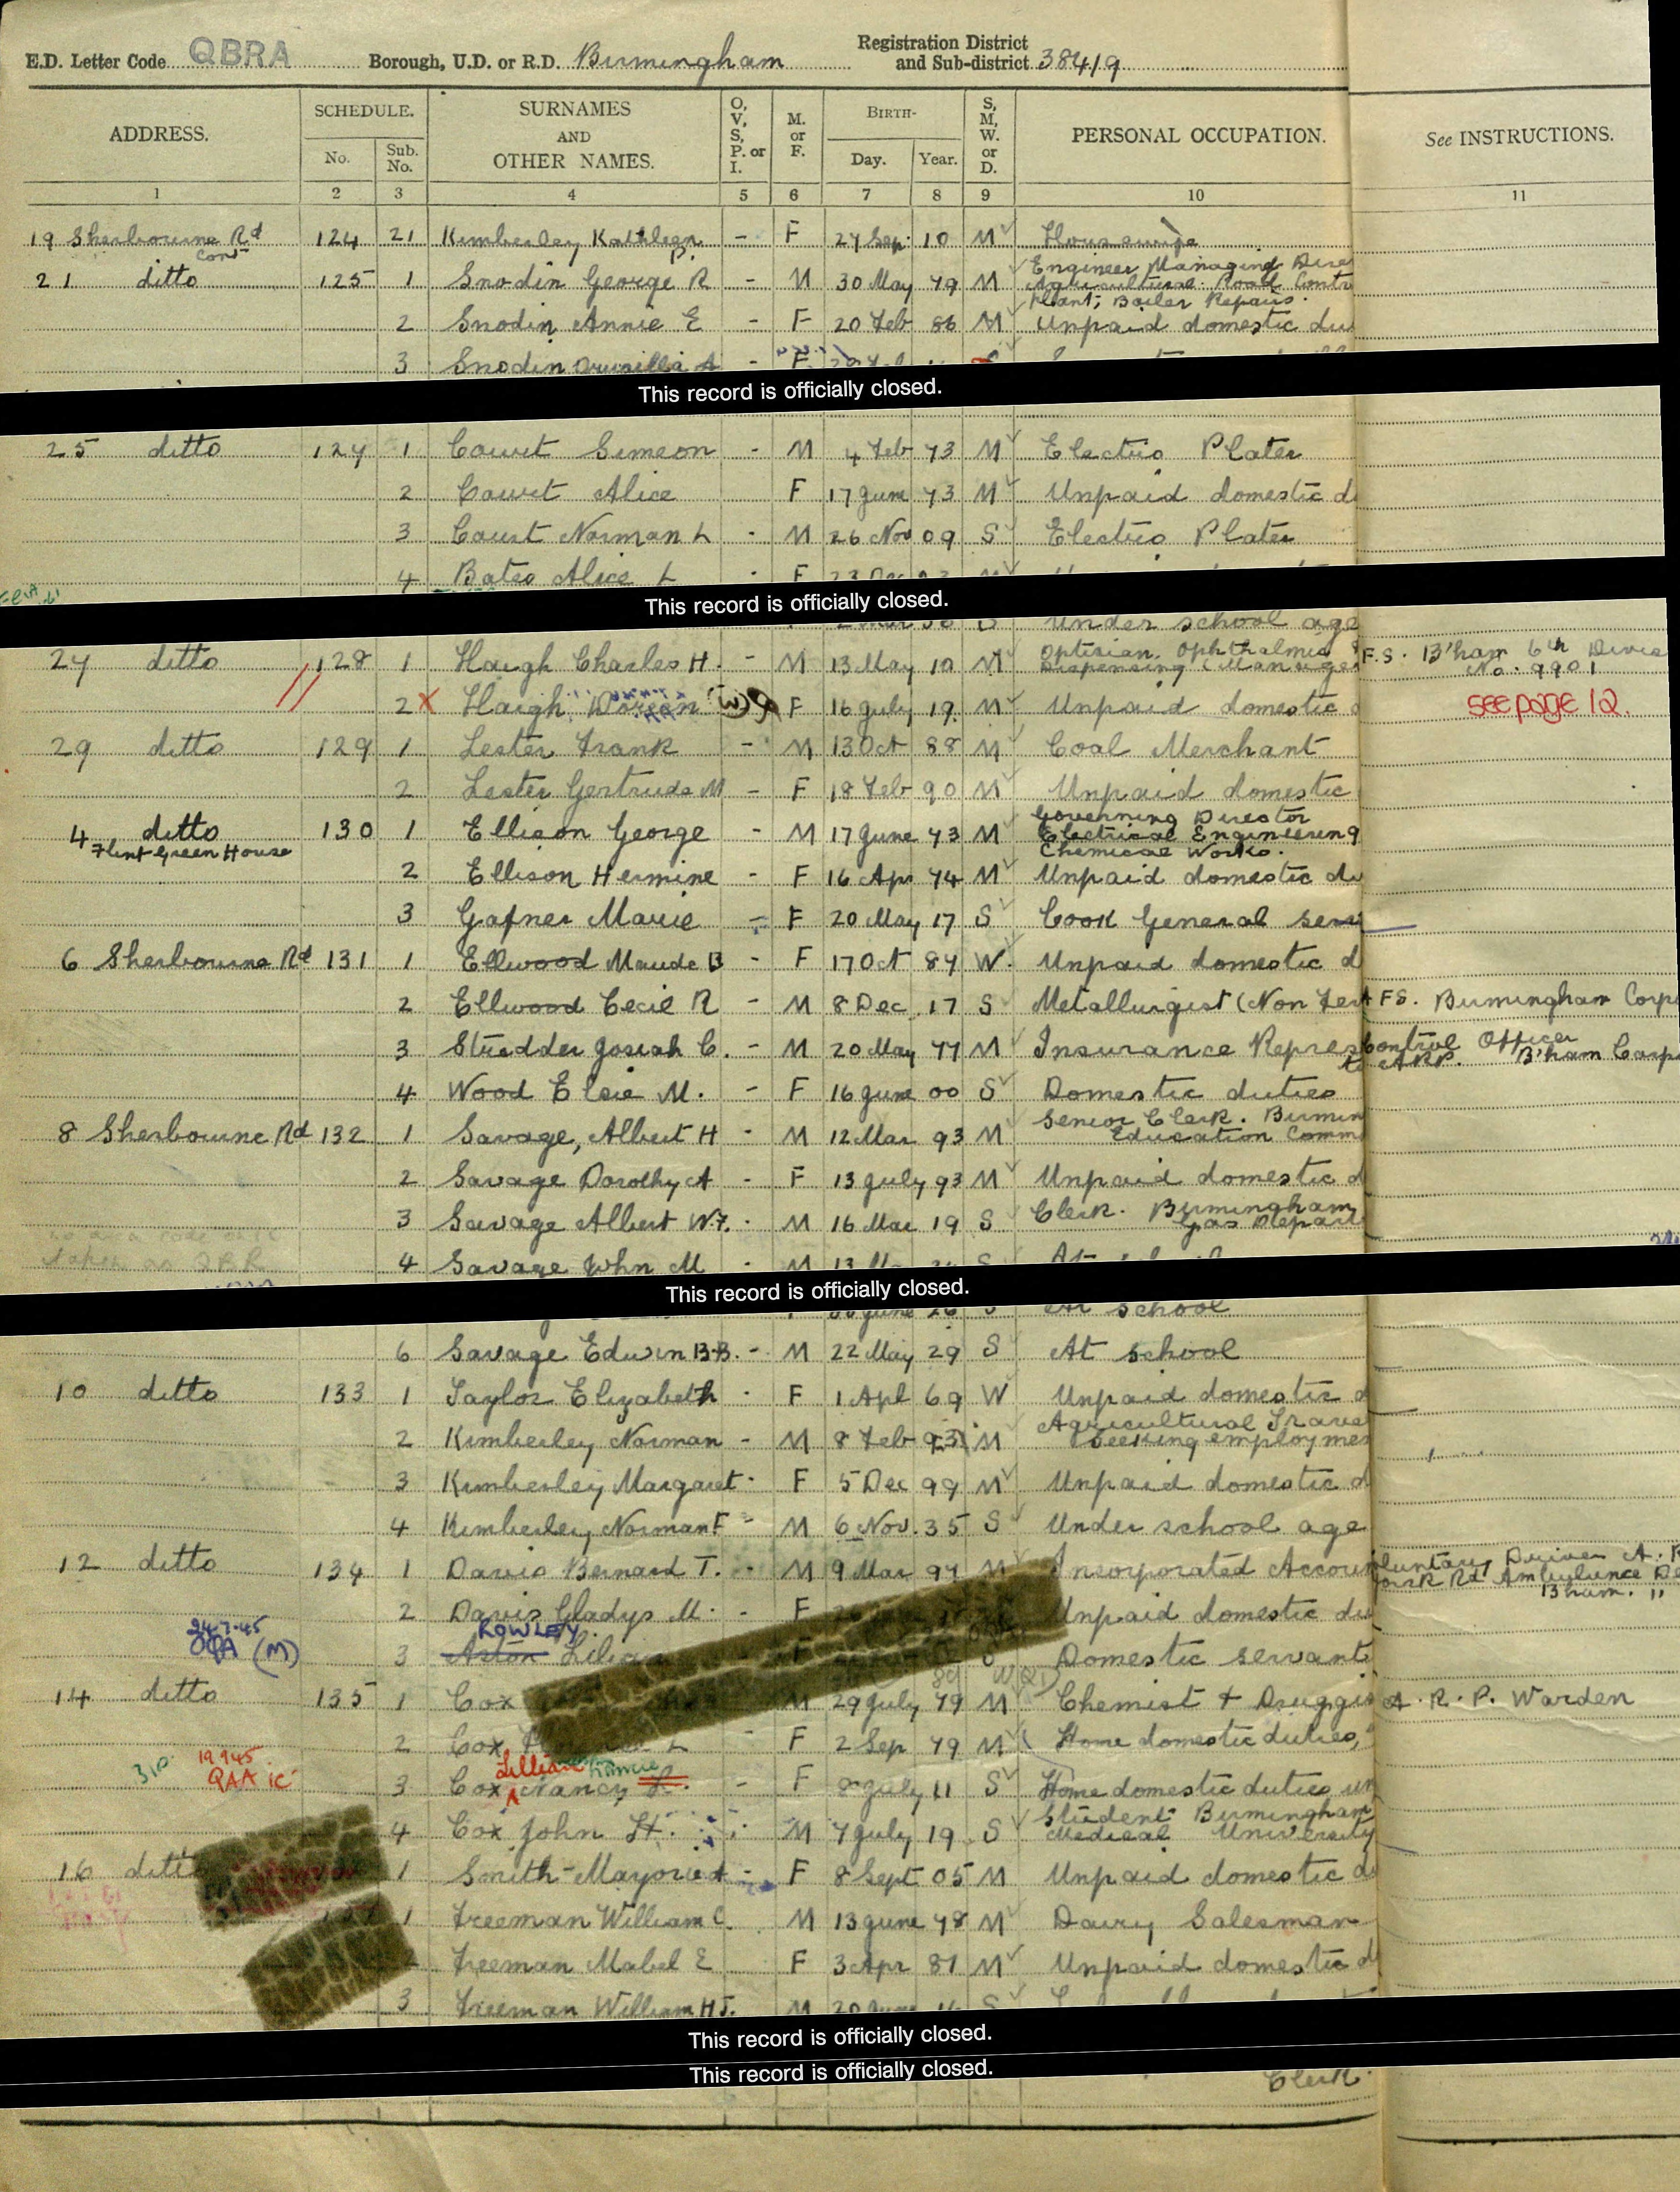 E.D. Letter Code QBRA Borough, U.D. or R.D. Birmingham Registration District and Sub-district 384/9
ADDRESS. SCHEDULE. No. Sub. No. SURNAMES AND OTHER NAMES. O, V, S, P. or I. M. or F. BIRTH- Day. Year. S, M, W. or D. PERSONAL OCCUPATION. See INSTRUCTIONS.
1 2 3 4 5 6 7 8 9 10 11
19 Sherbourne Rd cont 124 21 Kimberley Kathleen P. - F 27 Sep 10 M Housewife
21 ditto 125 1 Snodin George R - M 30 May 79 M Engineer Managing
Agricultural Road
Plant, Boiler Repairs.
2 Snodin Annie E - F 20 Feb 86 M Unpaid domestic
3 Snodin A - F
This record is officially closed.
25 ditto 127 1 Court Simeon - M 4 Feb 73 M Electro Plater
2 Court Alice F 17 June 73 M Unpaid domestic d
3 Court Norman L - M 26 Nov 09 S Electro Plater
4 Bates Alice L - F
This record is officially closed.
Under school age
27 ditto 128 1 Haigh Charles H. - M 13 May 10 M Optician. Ophthalmic F.S. B'ham 6th
Dispensing (Manager No. 9901
2 X Haigh Doreen (W) F 16 July 19 M Unpaid domestic see page 12.
29 ditto 129 1 Lester Frank - M 13 Oct 88 M Coal Merchant
2 Lester Gertrude M - F 18 Feb 90 M Unpaid domestic
4 ditto 130 1 Ellison George - M 17 June 73 M Governing Director
Flint Green House Electrical Engineering
Chemical Works.
2 Ellison Hermine - F 16 Apr 74 M Unpaid domestic du
3 Gafner Marie - F 20 May 17 S Cook General
6 Sherbourne Rd 131 1 Ellwood Maude B - F 17 Oct 87 W. Unpaid domestic d
2 Ellwood Cecil R - M 8 Dec 17 S Metallurgist (Non FS. Birmingham Corp
3 Josiah C. - M 20 May 77 M Insurance Control Officer
to ARP. B'ham Corp
4 Wood Elsie M. - F 16 June 00 S Domestic duties
8 Sherbourne Rd 132 1 Savage, Albert H - M 12 Mar 93 M Senior Clerk. Birmin
Education Comm
2 Savage Dorothy A - F 13 July 93 M Unpaid domestic d
3 Savage Albert W.F. - M 16 Mar 19 S Clerk. Birmingham
Gas Depart
4 Savage John M - M 13
This record is officially closed.
June 26 S At school
6 Savage Edwin B.B. - M 22 May 29 S At school
10 ditto 133 1 Taylor Elizabeth - F 1 Apl 69 W Unpaid domestic d
2 Kimberley Norman - M 8 Feb 93 M Agricultural
seeking employmen
3 Kimberley Margaret - F 5 Dec 99 M Unpaid domestic d
4 Kimberley Norman F - M 6 Nov. 35 S Under school age
12 ditto 134 1 Davis Bernard T. - M 9 Mar 97 M Incorporated Driver A.
Rd Ambulance
B'ham.
2 Davis Gladys M. - F Unpaid domestic du
24.7.45 ROWLEY
(M) 3 Aston Domestic servant
14 ditto 135 1 Cox M 29 July 79 M Chemist & A.R.P. Warden
2 Cox L - F 2 Sep 79 M Home domestic duties,
19 9 45 Lillian
QAA 3 Cox Nancy L. - F 8 July 11 S Home domestic duties
4 Cox John H. M 7 July 19 S Student Birmingham
Medical University
16 1 Smith Mayorie A - F 8 Sept 05 M Unpaid domestic d
1 Freeman William C. M 13 June 78 M Dairy Salesman
Freeman Mabel E F 3 Apr 81 M Unpaid domestic d
3 Freeman William H J. M
This record is officially closed.
This record is officially closed.
Clerk.